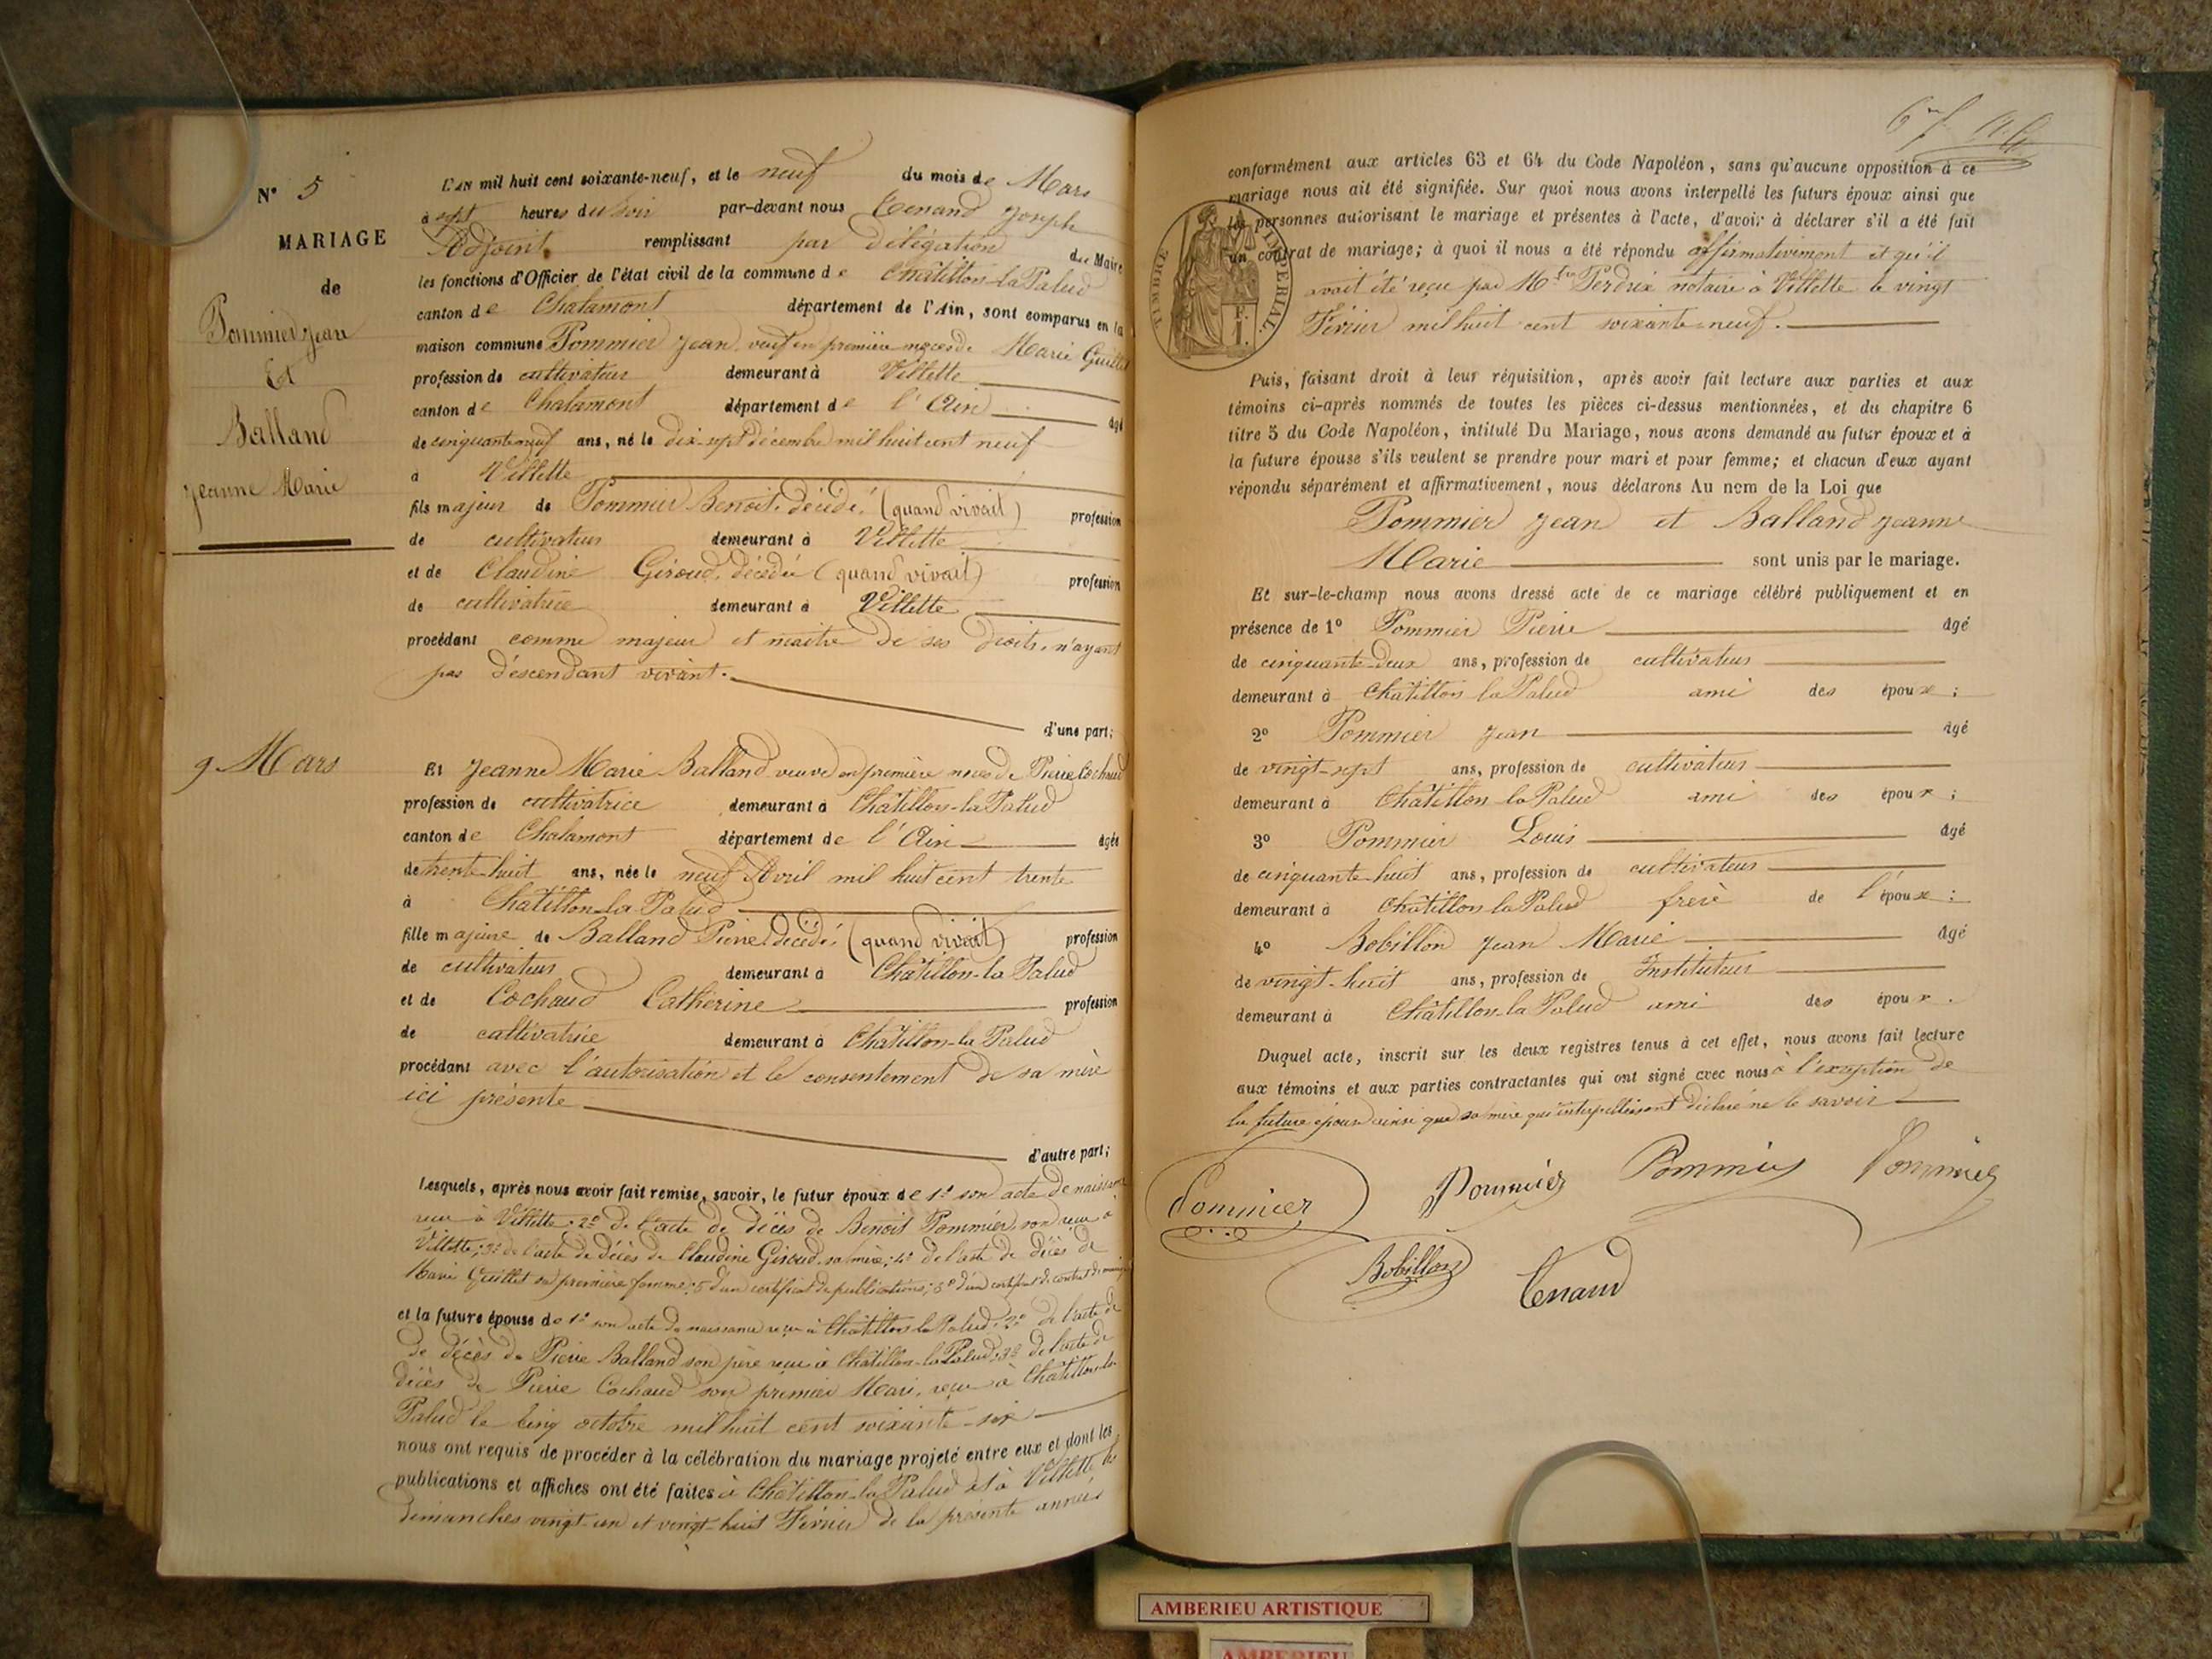 N° 5
MARIAGE
de
Pommier Jean
Et
Balland
Jeanne Marie
9 Mars
L'AN mil huit cent soixante-neuf, et le neuf du mois de Mars
à sept heures du soir par-devant nous Tenand Joseph
Adjoint remplissant par délégation du Maire
les fonctions d'Officier de l'état civil de la commune de Châtillon-la-Palud
canton de Chalamont département de l'Ain, sont comparus en la
maison commune Pommier Jean, veuf en première noces de Marie Guillet
profession de cultivateur demeurant à Villette
canton de Chalamont département de l'Ain âgé
de cinquante neuf ans, né le dix-sept décembre mil huit cent neuf
à Villette
fils majeur de Pommier Benoit, décédé, (quand vivait) profession
de cultivateur demeurant à Villette
et de Claudine Giroud, décédée (quand vivait) profession
de cultivatrice demeurant à Villette
procédant comme majeur et maitre de ses droits, n'ayant
pas déscendant vivant.
d'une part;
Et Jeanne Marie Balland veuve en première noces de Pierre Cochaud
profession de cultivatrice demeurant à Châtillon-la-Palud
canton de Chalamont département de l'Ain âgée
de trente-huit ans, née le neuf Avril mil huit cent trente
à Châtillon-la-Palud
fille majeure de Balland Pierre, décédé, (quand vivait) profession
de cultivateur demeurant à Châtillon-la-Palud
et de Cochaud Cathérine profession
de cultivatrice demeurant à Châtillon-la-Palud
procédant avec l'autorisation et le consentement de sa mère
ici présente
d'autre part;
Lesquels, après nous avoir fait remise, savoir, le futur époux de 1° son acte de naissance
reçu à Villette, 2° de l'acte de décès de Benoit Pommier, son reçu à
Villette; 3° de l'acte de décès de Claudine Giroud, sa mère; 4° de l'acte de décès de
Marie Guillet sa première femme; 5° d'un certificat de publications; 6° d'un certificat de contrat de mariage
et la future épouse de 1° son acte de naissance reçu à Châtillon-la-Palud; 2° de l'acte de
de décès de Pierre Balland son père reçu à Châtillon-la-Palud; 3° de l'acte de
décès de Pierre Cochaud son premier Mari, reçu à Châtillon-la-
Palud le cinq octobre mil huit cent soixante-six
nous ont requis de procéder à la célébration du mariage projeté entre eux et dont les
publications et affiches ont été faites à Châtillon-la-Palud et à Villette les
dimanches vingt-un et vingt-huit Février de la présente année
conformément aux articles 63 et 64 du Code Napoléon, sans qu'aucune opposition à ce
mariage nous ait été signifiée. Sur quoi nous avons interpellé les futurs époux ainsi que
les personnes autorisant le mariage et présentes à l'acte, d'avoir à déclarer s'il a été fait
un contrat de mariage; à quoi il nous a été répondu affirmativement et qu'il
avait été reçu par Mtre Perdrix notaire à Villette le vingt
Février mil huit cent soixante-neuf.
TIMBRE IMPERIAL
Puis, faisant droit à leur réquisition, après avoir fait lecture aux parties et aux
témoins ci-après nommés de toutes les pièces ci-dessus mentionnées, et du chapitre 6
titre 5 du Code Napoléon, intitulé Du Mariage, nous avons demandé au futur époux et à
la future épouse s'ils veulent se prendre pour mari et pour femme; et chacun d'eux ayant
répondu séparément et affirmativement, nous déclarons Au nom de la Loi que
Pommier Jean et Balland Jeanne
Marie sont unis par le mariage.
Et sur-le-champ nous avons dressé acte de ce mariage célébré publiquement et en
présence de 1° Pommier Pierre âgé
de cinquante-deux ans, profession de cultivateur
demeurant à Châtillon la Palud ami des époux;
2° Pommier Jean âgé
de vingt-sept ans, profession de cultivateur
demeurant à Châtillon-la-Palud ami des époux;
3° Pommier Louis âgé
de cinquante-huit ans, profession de cultivateur
demeurant à Châtillon la Palud frère de l'époux;
4° Bobillon Jean Marie âgé
de vingt-huit ans, profession de Instituteur
demeurant à Châtillon-la-Palud ami des époux.
Duquel acte, inscrit sur les deux registres tenus à cet effet, nous avons fait lecture
aux témoins et aux parties contractantes qui ont signé avec nous à l'exception de
la future épouse ainsi que sa mère qui interpellés ont déclaré ne le savoir
Pommier Pommier Pommier Pommier
Bobillon Tenand
AMBERIEU ARTISTIQUE
AMBERIEU